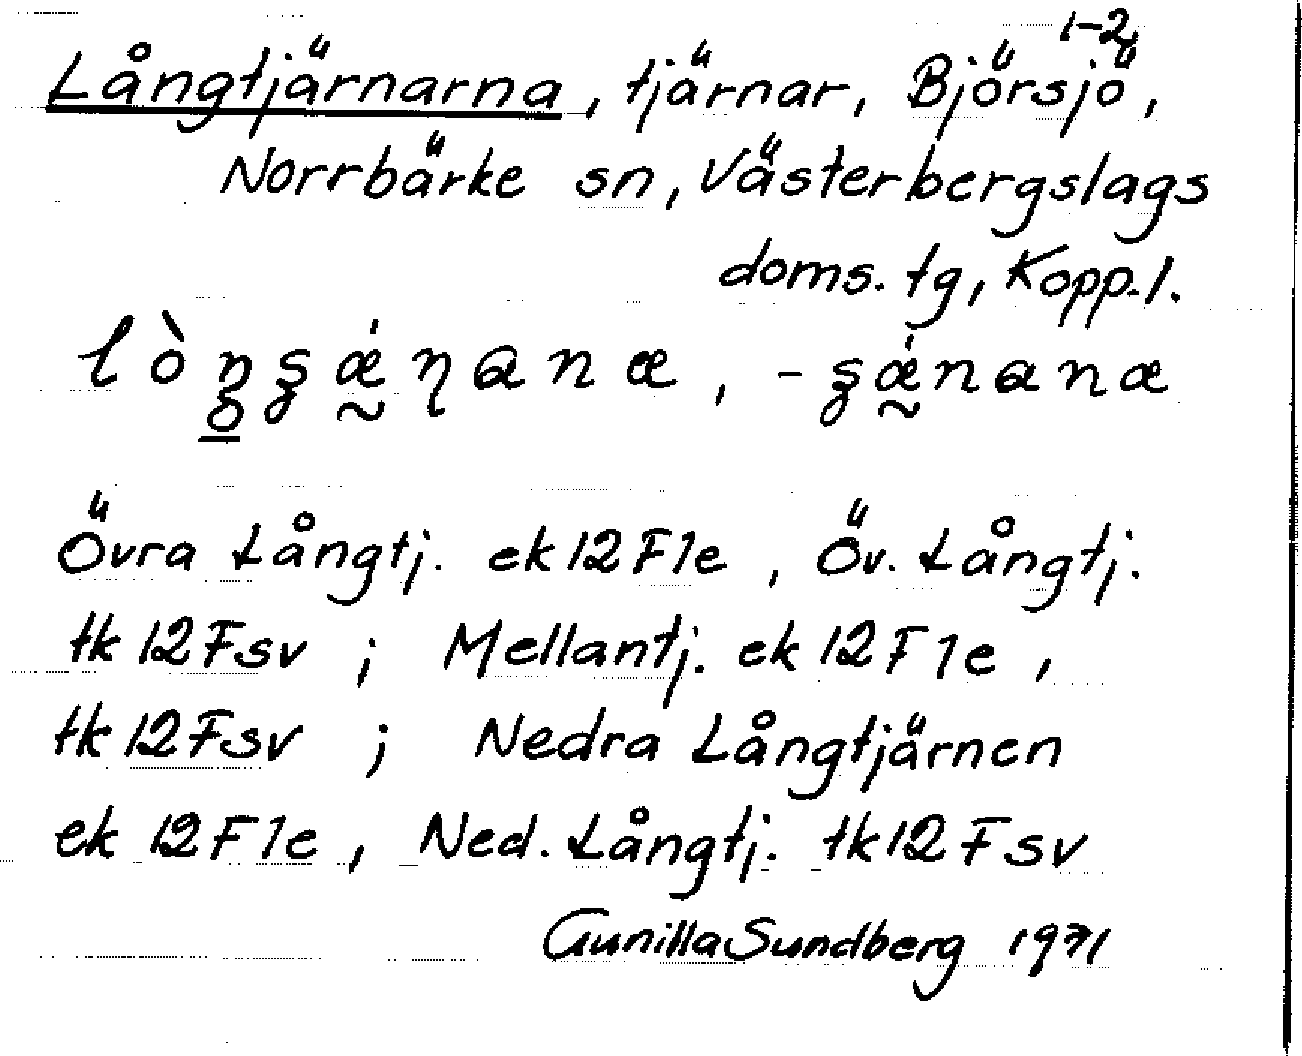 Långtjärnarna, tjärnar, Björsjö 1-2,
Norrbärke sn, Västerbergslags
doms. tg, Kopp. l.
Övra Långtj. ek 12 F 1e, Öv. Långtj.
tk 12 F sv; Mellantj. ek 12 F 1e,
tk 12 F sv; Nedra Långtjärnen
ek 12 F 1e, Ned. Långtj. tk 12 F sv
Gunilla Sundberg 1971